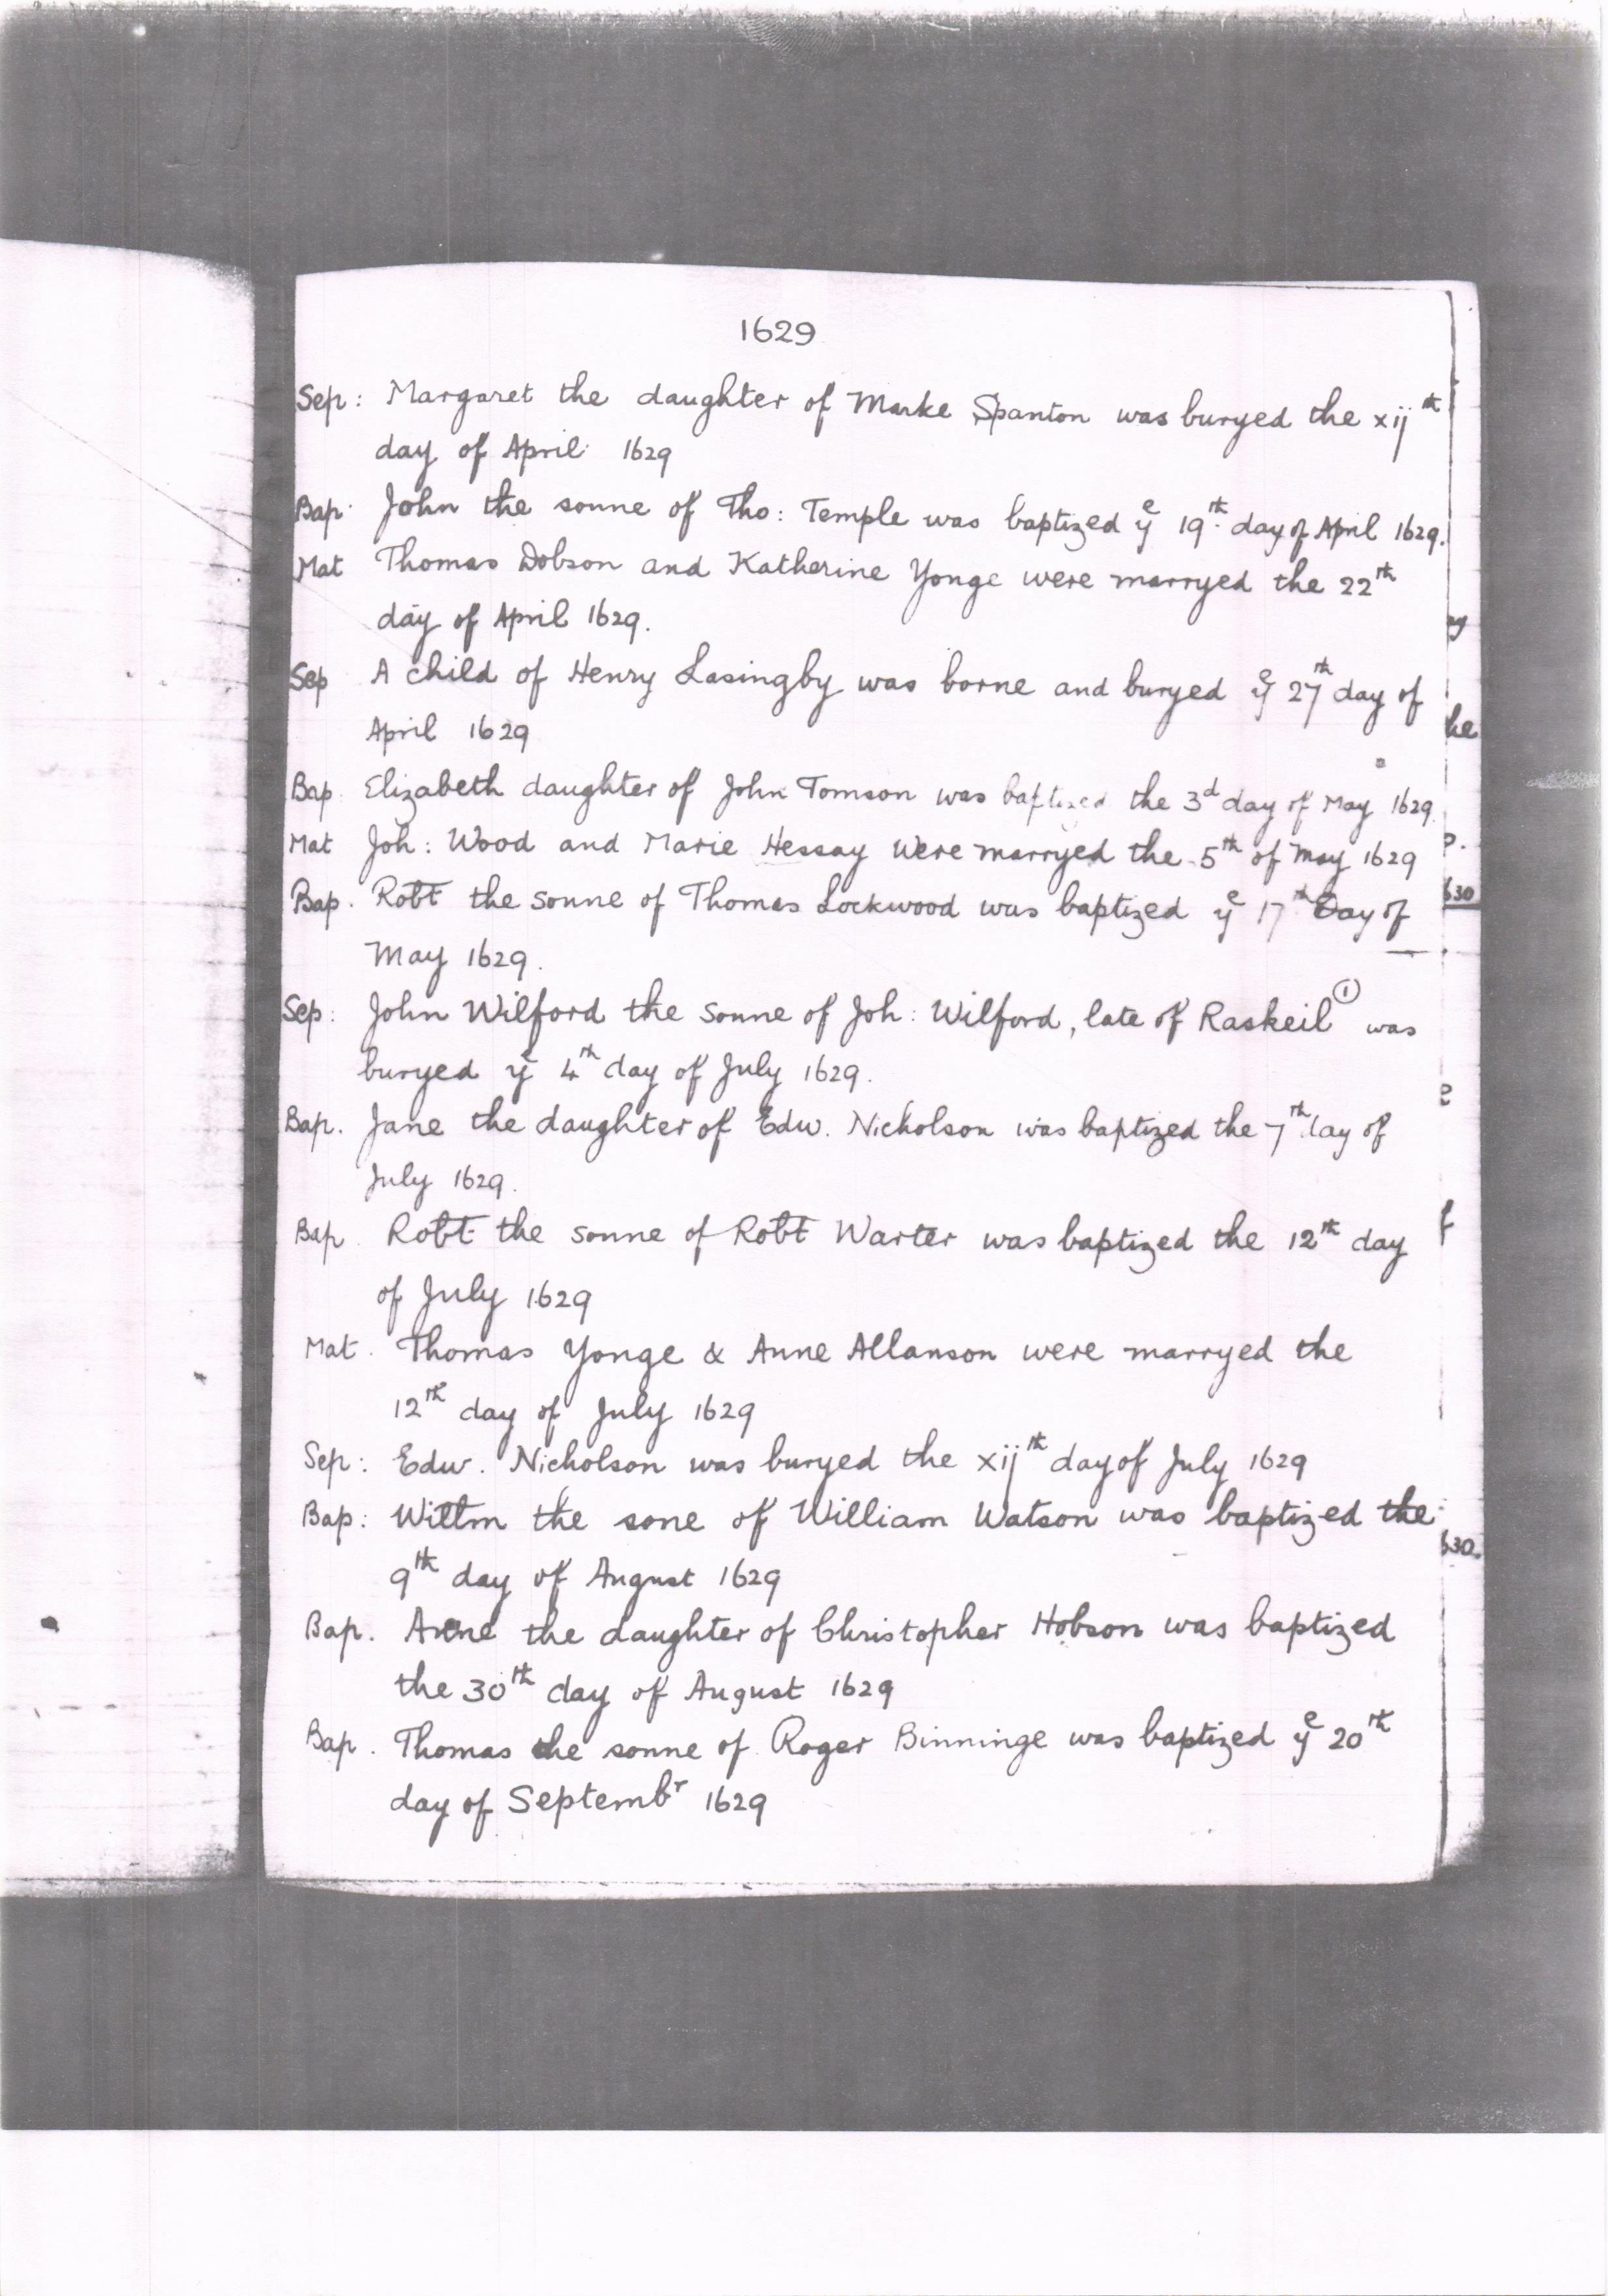 1629
Sep: Margaret the daughter of Marke Spanton was buryed the xij th
day of April 1629
Bap: John the sonne of Tho: Temple was baptized ye 19th day of April 1629.
Mat Thomas Dobson and Katherine Yonge were marryed the 22th
day of April 1629.
Sep A child of Henry Lasingby was borne and buryed ye 27th day of
April 1629
Bap Elizabeth daughter of John Tomson was baptized the 3d day of May 1629
Mat Joh: Wood and Marie Hessay were marryed the 5th of May 1629
Bap. Robt the sonne of Thomas Lockwood was baptized ye 17th Day of
May 1629.
Sep: John Wilford the sonne of Joh: Wilford, late of Raskeil (1) was
buryed ye 4th day of July 1629.
Bap. Jane the daughter of Edw. Nicholson was baptized the 7th day of
July 1629.
Bap Robt the sonne of Robt Warter was baptized the 12th day
of July 1629
Mat. Thomas Yonge & Anne Allanson were marryed the
12th day of July 1629
Sep: Edw. Nicholson was buryed the xij th day of July 1629
Bap: Willm the sone of William Watson was baptized the
9th day of August 1629
Bap. Anne the daughter of Christopher Hobson was baptized
the 30th day of August 1629
Bap. Thomas the sonne of Roger Binninge was baptized ye 20th
day of Septembr 1629